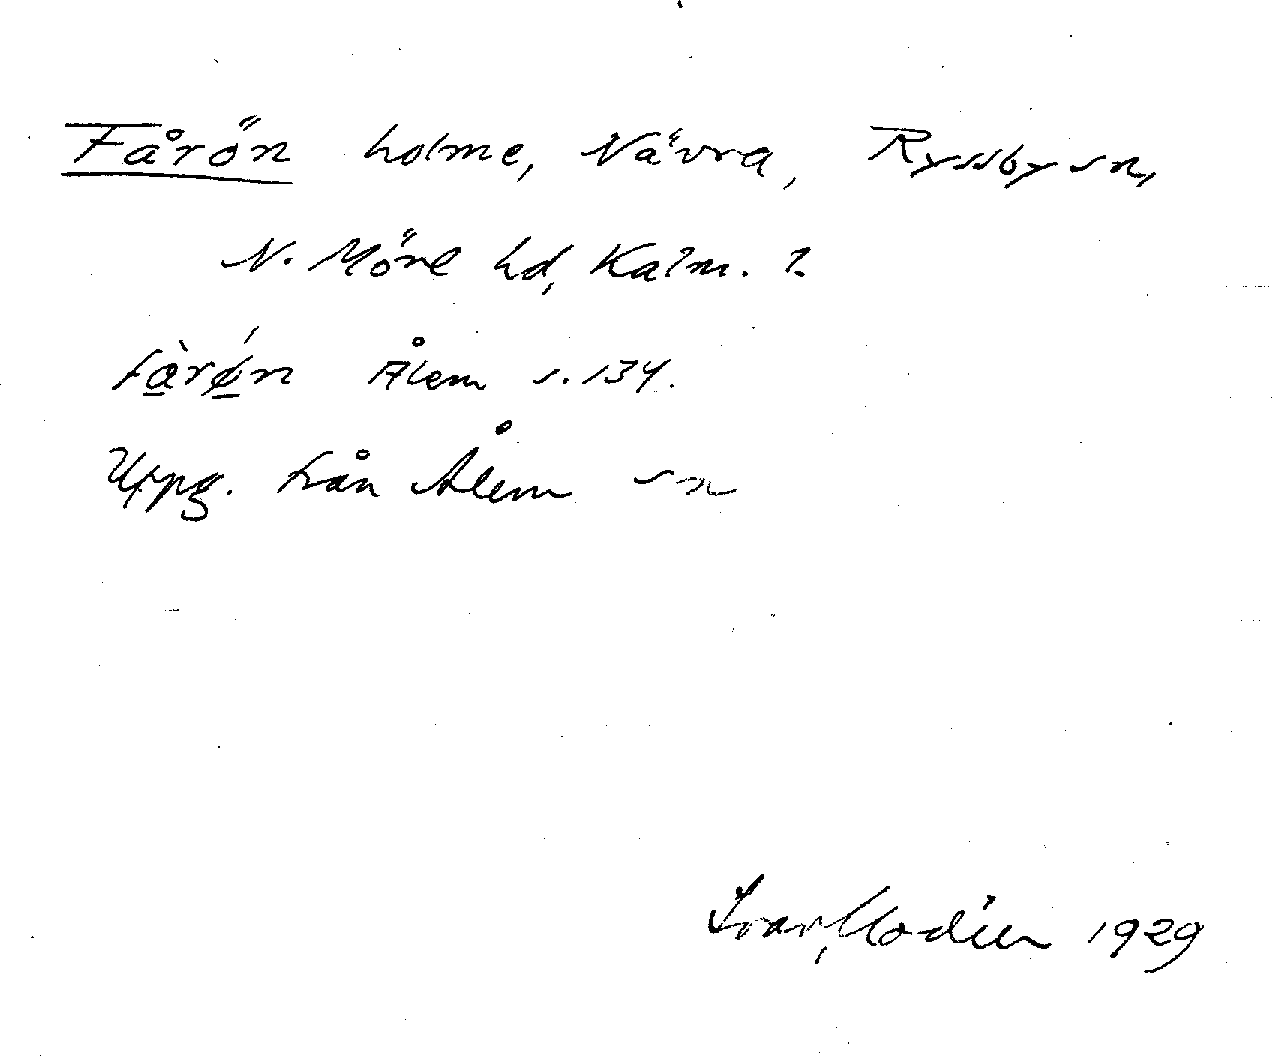 Fårön holme, Nävra, Ryssby sn,
N. Möre hd, Kalm. l.
fàrø̀n Ålem s. 134.
Uppg. från Ålem sn
Ivar Modéer 1929